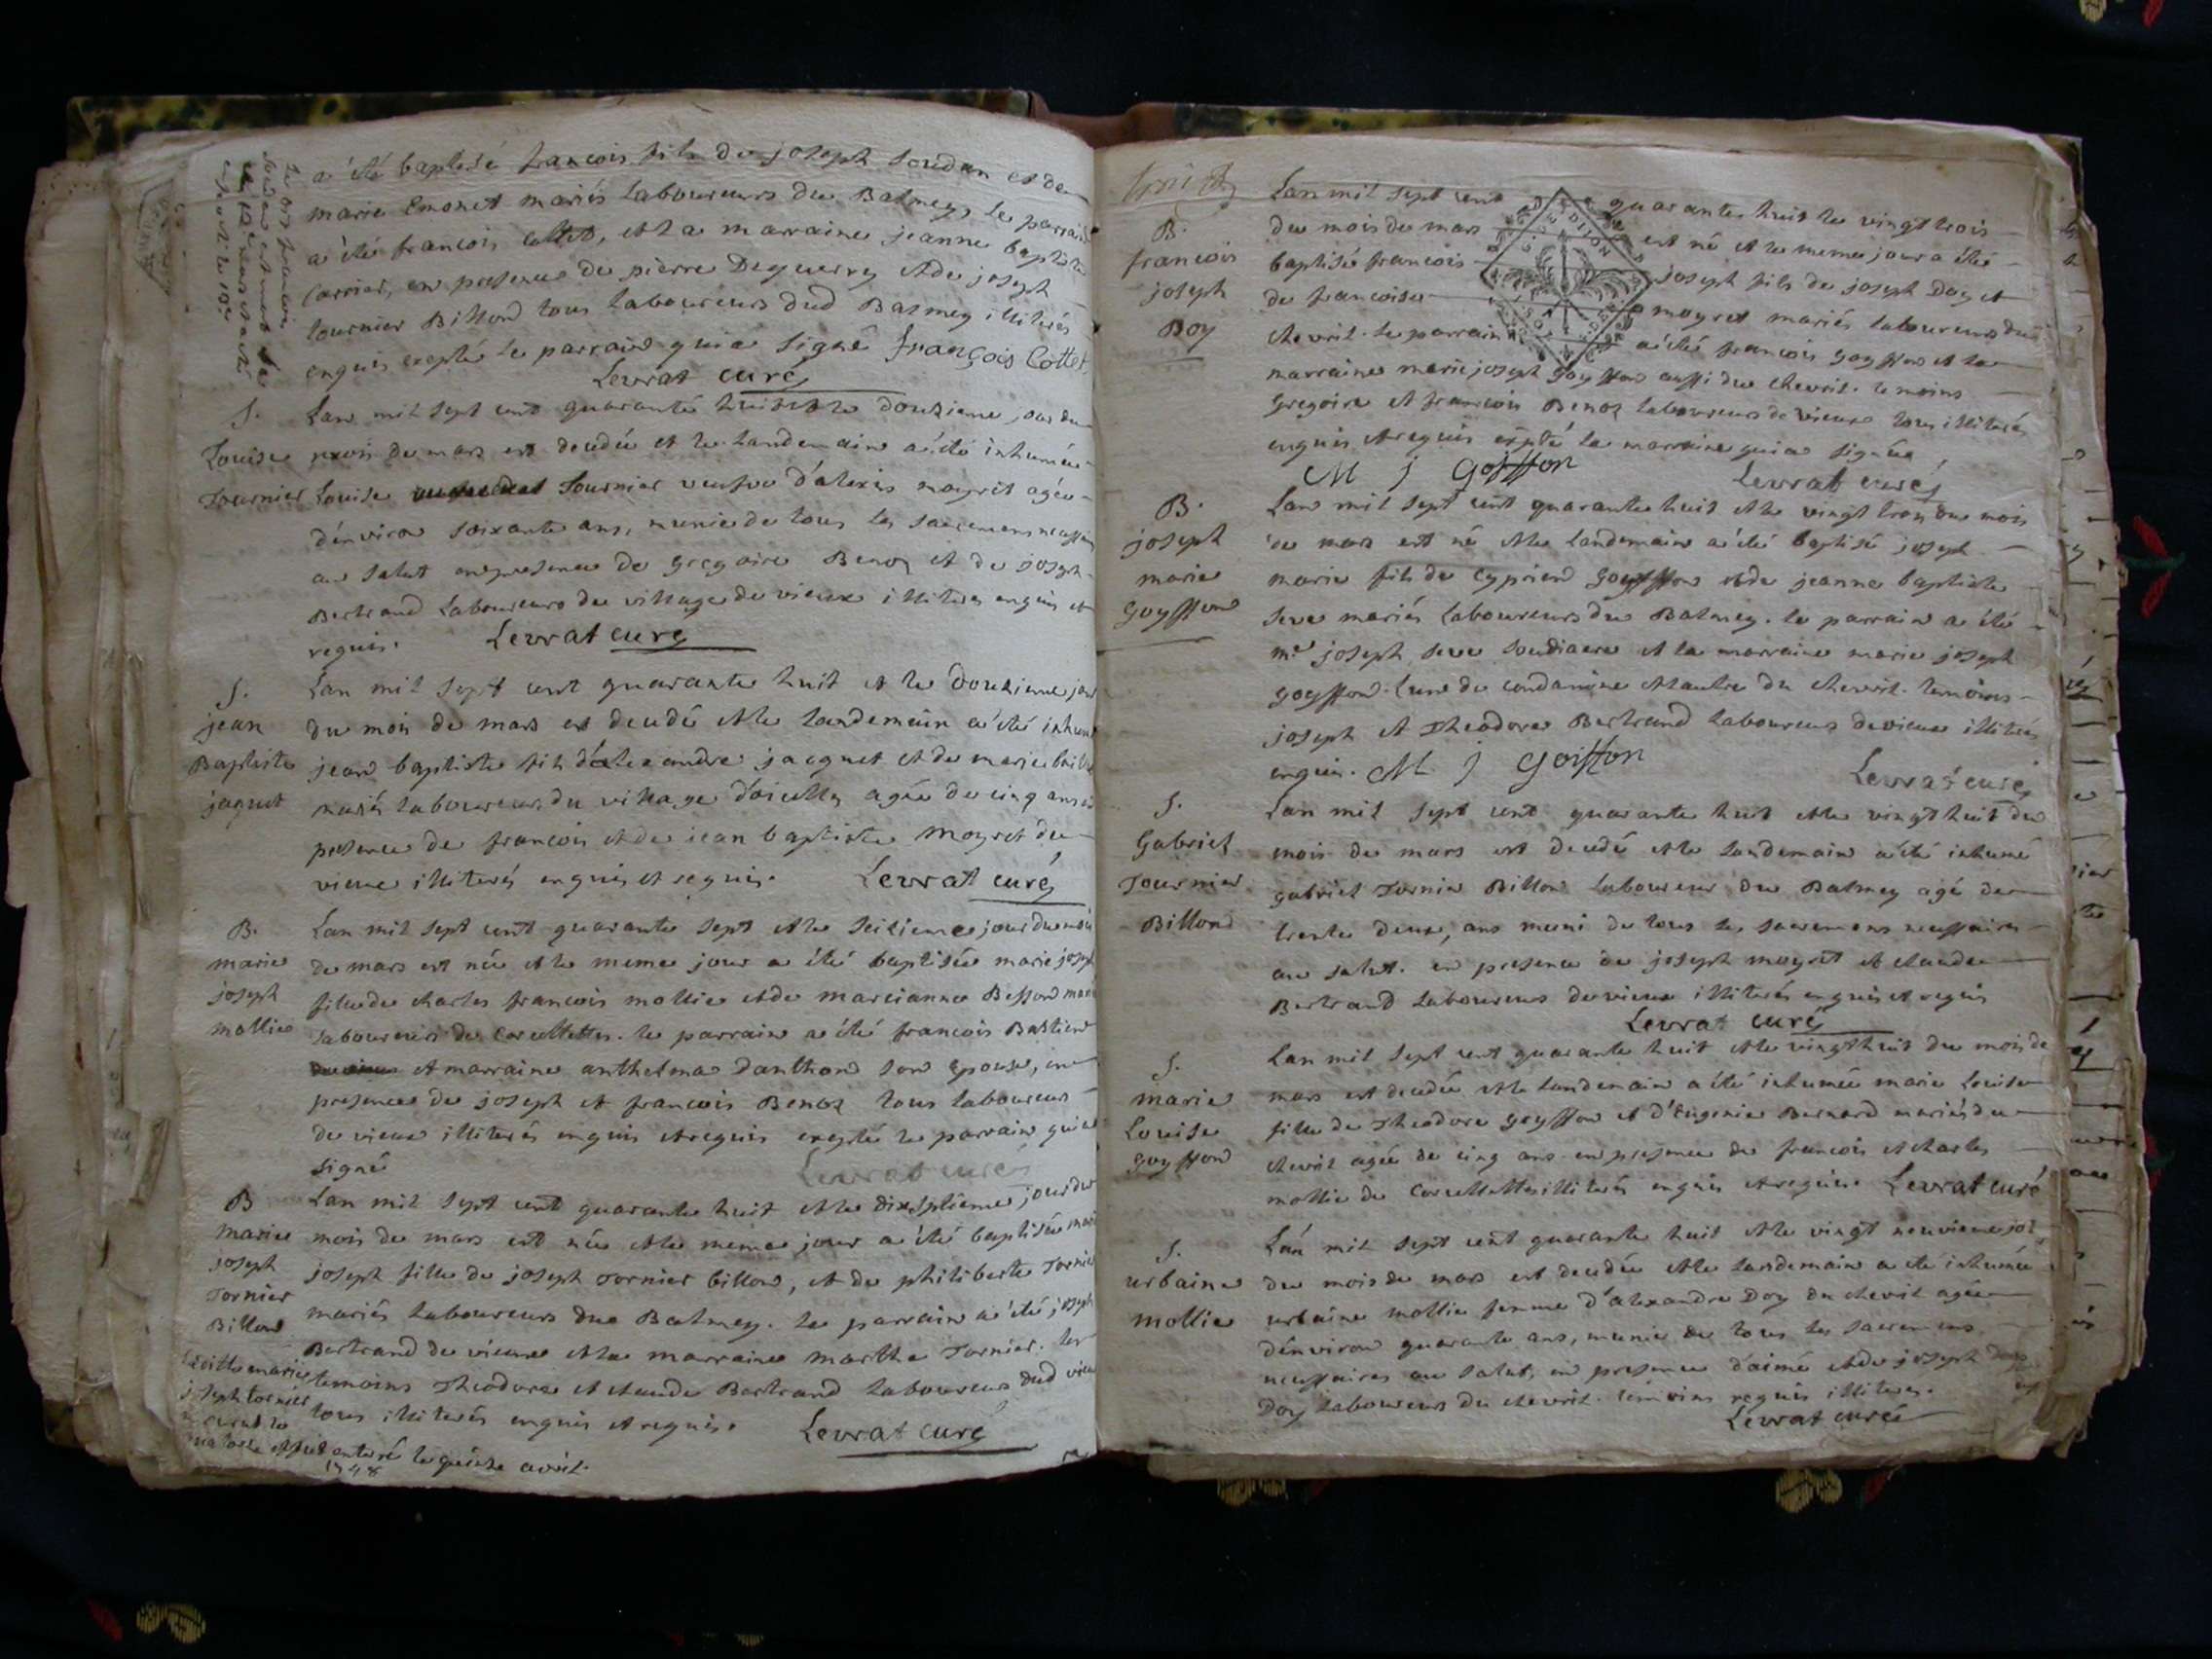 a été baptisé francois fils de joseph soudan et de
marie Emonet mariés laboureurs du Balmey, le parrain
a été francois Cottet, et la marraine jeanne baptiste
Carrier, en presence de pierre Deguerry et de joseph
tournier Billond tous laboureurs dud Balmey illiterés
enquis exepté le parrain qui a signé françois Cottet
Levrat curé
S.
Louise
Tournier
Lan mil sept cent quarante huit et le douzieme jour du
mois de mars est decedée et le landemain a été inhumée
Louise Tournier veufve d'alexis moyret agée
d'environ soixante ans, munie de tous les sacremens necessaires
au salut en presence de gregoire Benoz et de joseph
Bertrand laboureurs du village de vieux illiteres enquis et
requis. Levrat curé
S.
jean
Baptiste
jaquet
Lan mil sept cent quarante huit et le douzieme jour
du mois de mars est decedé et le landemain a été inhumé
jean baptiste fils d'alexandre jacquet et de marie
mariés laboureurs du village d'ossellaz agée de cinq ans en
presence de francois et de jean baptiste moyret de
vieux illiterés enquis et requis. Levrat curé
B.
marie
joseph
mollie
Lan mil sept cent quarante sept et le seizieme jour du mois
de mars est née et le meme jour a été baptisée marie joseph
fille de charles francois mollie et de marianne Besson mariés
laboureurs de Corcellettes. le parrain a été francois Bastien
et marraine anthelma Danthon son epouse, en
presence de joseph et francois Benoz tous laboureurs
de vieux illiterés enquis et requis exepté le parrain qui a
signé Levrat curé
B
marie
joseph
Tornier
Billond
Lan mil sept cent quarante huit et le dix septieme jour du
mois de mars est née et le meme jour a été baptisée marie
joseph fille de joseph Tornier billond, et de philiberte Tornier
mariés laboureurs du Balmey. le parrain a été joseph
Bertrand de vieux et la marraine marthe Tornier. les
temoins Theodore et claude Bertrand laboureurs dud vieux
tous illiterés enquis et requis. Levrat curé
laditte marie
joseph tornier
mourut le
quatorze et fut enterré le quinze avril
1748
B.
francois
joseph
Doy
Lan mil sept cent quarante huit le vingt trois
du mois de mars est né et le meme jour a été
baptisé francois joseph fils de joseph Doy et
de francoise moyret mariés laboureurs du
chevril. le parrain a été francois goyffon et la
marraine marie joseph goyffon aussi du chevril. temoins
gregoire et francois Benoz laboureurs de vieux tous illiterés
enquis et requis expté la marraine qui a signée
M j Goiffon Levrat curé
B.
joseph
marie
goyffon
Lan mil sept cent quarante huit et le vingt trois du mois
de mars est né et le landemain a été baptisé joseph
marie fils de Cyprien Goyffon et de jeanne baptiste
seve mariés laboureurs du Balmey. le parrain a été
mre joseph seve soudiacre et la marraine marie joseph
goyffon. l'une de condamine et l'autre du chevril. temoins
joseph et Theodore Bertrand laboureurs de vieux illiterés
enquis. M j Goiffon
Levrat curé
S.
Gabriel
Tournier
Billond
Lan mil sept cent quarante huit et le vingt huit du
mois de mars est decedé et le landemain a été inhumé
gabriel Tornier Billon laboureur du Balmey agé de
trente deux, ans muni de tous les sacremens necessaires
au salut. en presence de joseph moyret et claude
Bertrand laboureurs de vieux illiterés enquis et requis
Levrat curé
S.
marie
Louise
goyffon
Lan mil sept cent quarante huit et le vingt huit du mois de
mars est decedée et le landemain a été inhumée marie Louise
fille de Theodore goyffon et d'Eugenie Bernard mariés du
chevril agée de cinq ans en presence de francois et charles
mollie de Corcellettes illiterés enquis et requis. Levrat curé
S.
urbaine
mollie
Lan mil sept cent quarante huit et le vingt neuvieme jor
du mois de mars est decedée et le landemain a été inhumée
urbaine mollie femme d'alexandre Doy du chevril agée
d'environ quarante ans, munie de tous les sacremens
necessaires au salut, en presence d'aimé et de joseph
Doy laboureurs du chevril. temoins requis illiteres.
Levrat curé